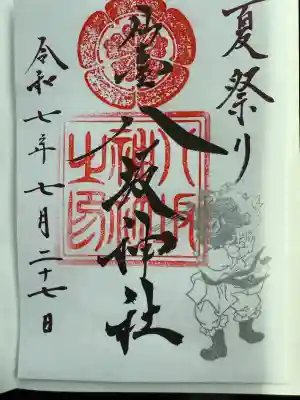 夏祭り
八坂神社
令和七年七月二十七日
八坂神社之印